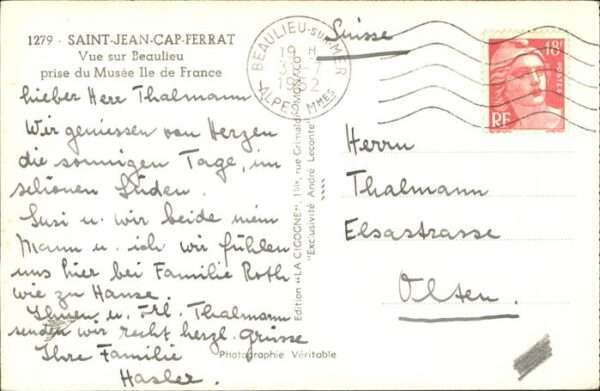 1279 - SAINT-JEAN-CAP-FERRAT
Vue sur Beaulieu
prise du Musée Ile de France
Lieber Herr Thalmann
Wir geniessen von Herzen
die sonnigen Tage, im
schönen Süden.
Susi u. wir beide mein
Mann u. ich wir fühlen
uns hier bei Familie Roth
wie zu Hause.
Ihnen u. Frl. Thalmann
senden wir recht herzl. Grüsse
Ihre Familie
Hasler.
Photographie Véritable
Edition "LA CIGOGNE", rue Grimaldi MONACO
"Exclusivité André Leconte"
BEAULIEU-SUR-MER
19 H
1952
ALPES MMES
Suisse
18F
POSTES
RF
Herrn
Thalmann
Elsastrasse
Olten.